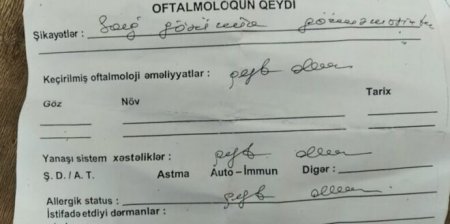 OFTALMOLOQUN QEYDİ
Şikayətlər : Sağ gözümün
Keçirilmiş oftalmoloji əməliyyatlar : qeyd olunur
Göz Növ Tarix
Yanaşı sistem xəstəliklər : qeyd olunur
Ş. D. / A. T. Astma Auto – İmmun Digər :
Allergik status : qeyd olunur
İstifadə etdiyi dərmanlar :